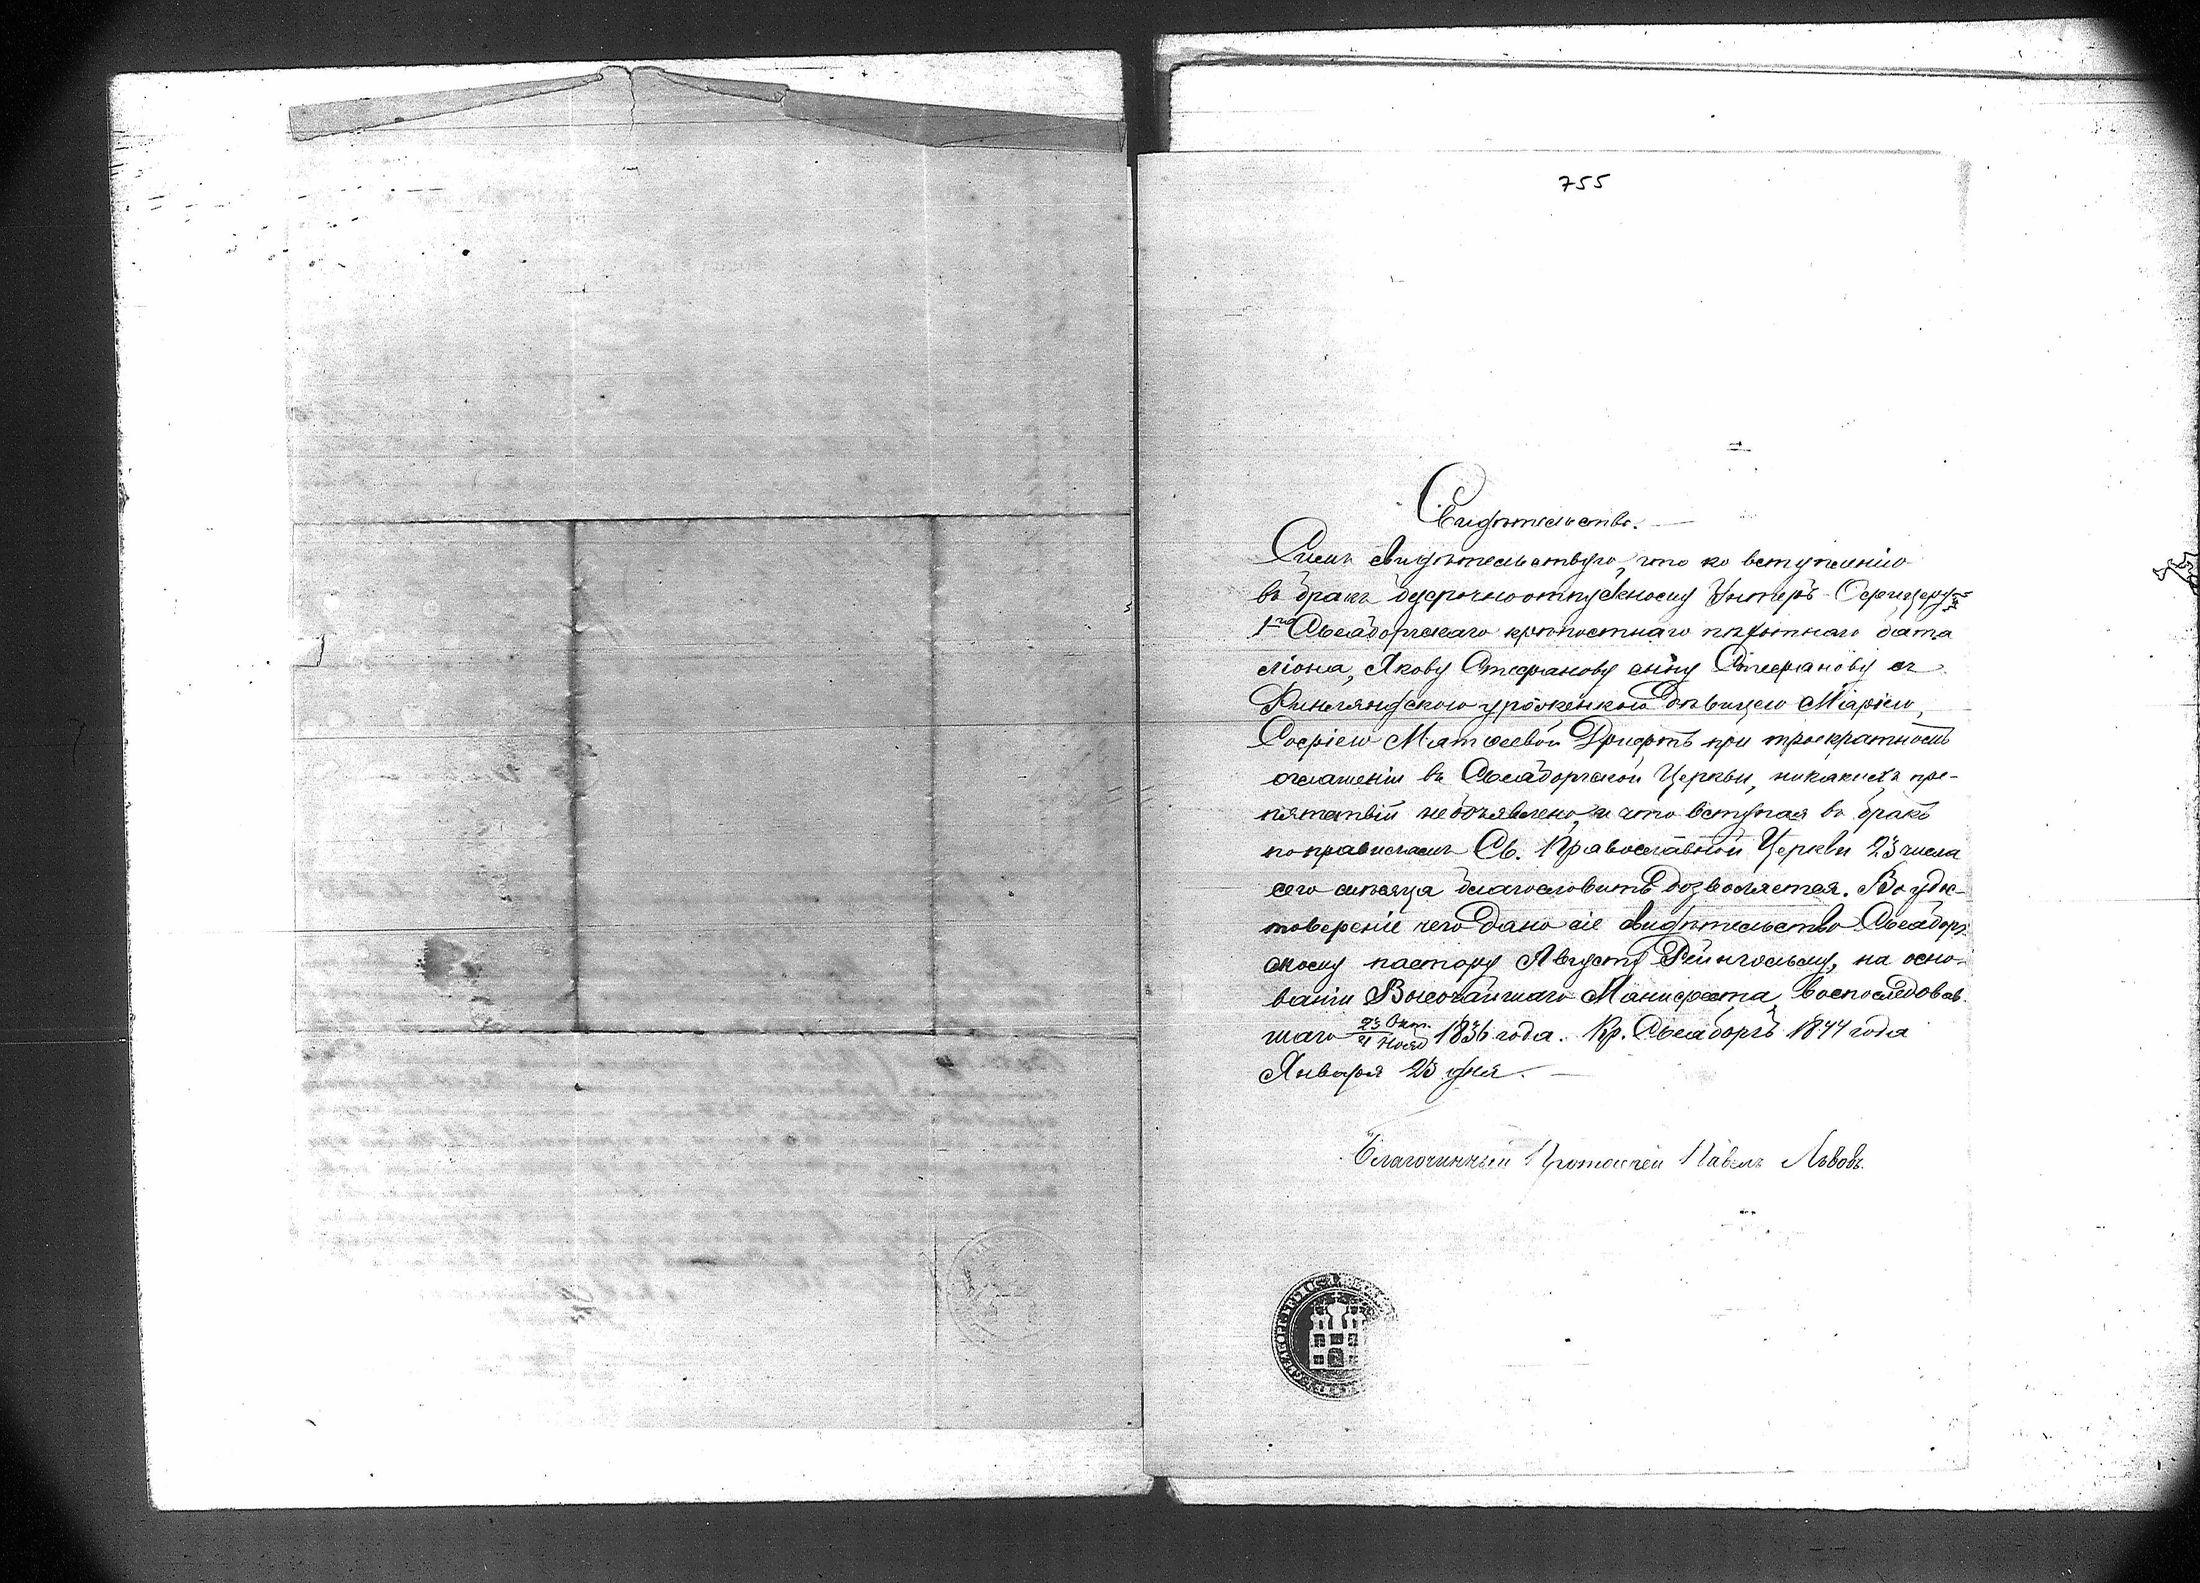 755
Свидѣтельство.
Симъ свидѣтельствую, что ко вступленію
въ бракъ безсрочноотпускному Унтеръ-Офицеру
1го Свеаборгскаго крѣпостнаго пѣхотнаго бата
ліона, Якову Стефанову сыну Стефанову съ
Финляндскою уроженкою Дѣвицею Маріею,
Софіею Матвеевой при троекратномъ
оглашеніи въ Свеаборгской Церкви, никакихъ пре-
пятствій необъявлено, и что вступая въ бракъ
поправиламъ Св. Православной Церкви 23 числа
сего мѣсяца благословить дозволяется. Во удос-
товереніе чего дано сіе свидѣтельство Свеаборг-
скому пастору Августу на осно-
ваніи Высочайшаго Манифеста, воспоследовав-
шаго 23 Окт. / 4 Нояб 1836 года. Кр. Свеаборгъ 1844 года
Января 23 дня.
Благочинный Протоіерей Павелъ Львовъ.